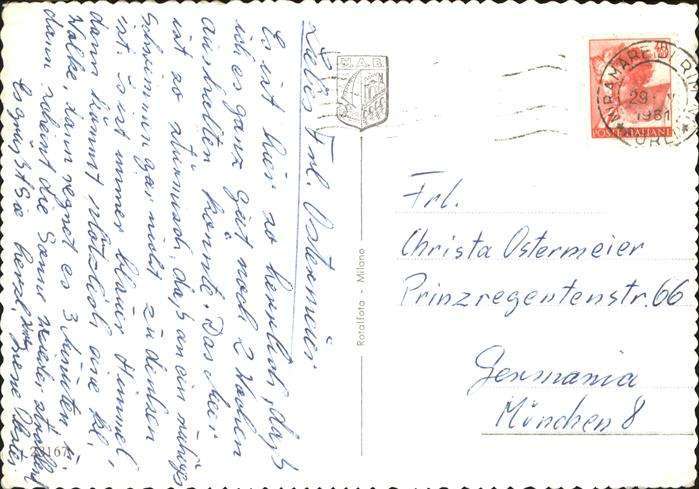 Liebes Frl. Ostermeier
Es ist hier so herrlich, daß
ich es ganz gut noch 2 Wochen
aushalten könnte. Das Meer
ist so stürmisch, daß an ein ruhiges
Schwimmen gar nicht zu denken
ist. Es ist immer blauer Himmel,
dann kommt plötzlich eine kl.
Wolke, dann regnet es 3 Minuten u.
dann scheint die Sonne wieder strahlend
Es grüßt Sie herzl. Ihre
M.A.R.
Rotalfoto - Milano
MIRAMARE DI RIMINI
29
1961
FORLI
POSTE ITALIANE
Frl.
Christa Ostermeier
Prinzregentenstr. 66
Germania
München 8